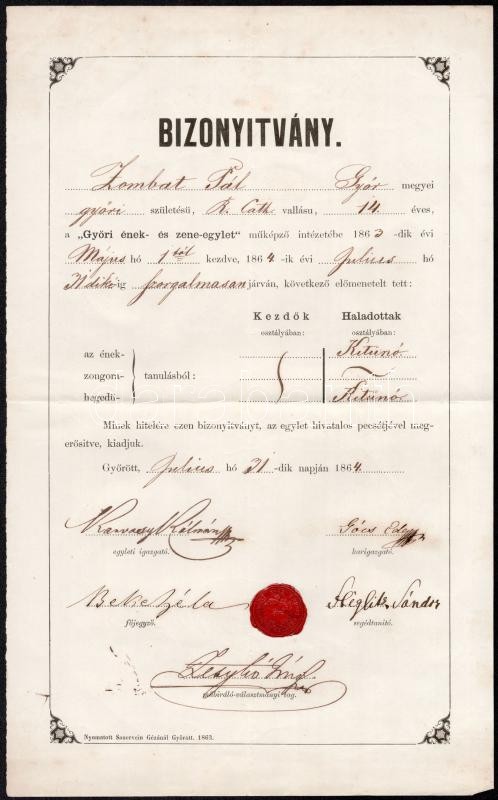 BIZONYITVÁNY.
Zombat Pál Győr megyei
győri születésü, R. Cath. vallásu, 14 éves,
a „Győri ének- és zene-egylet” műképző intézetébe 1863-dik évi
Május hó 1 től kezdve, 1864-ik évi Julius hó
31dikéig szorgalmasan járván, következő előmenetelt tett:
Kezdők Haladottak
osztályában: osztályában:
az ének- Kitünő
zongora- tanulásból: —
hegedü- Kitünő
Minek hitelére ezen bizonyitványt, az egylet hivatalos pecsétjével meg-
erősitve, kiadjuk.
Győrött, Julius hó 31-dik napján 1864.
Karvasy Kálmán Gócs Ede
egyleti igazgató. karigazgató.
Beke Géla Stéglitz Sándor
főjegyző. segédtanító.
műbiráló-választmányi tag.
Nyomatott Sauervein Gézánál Győratt. 1863.